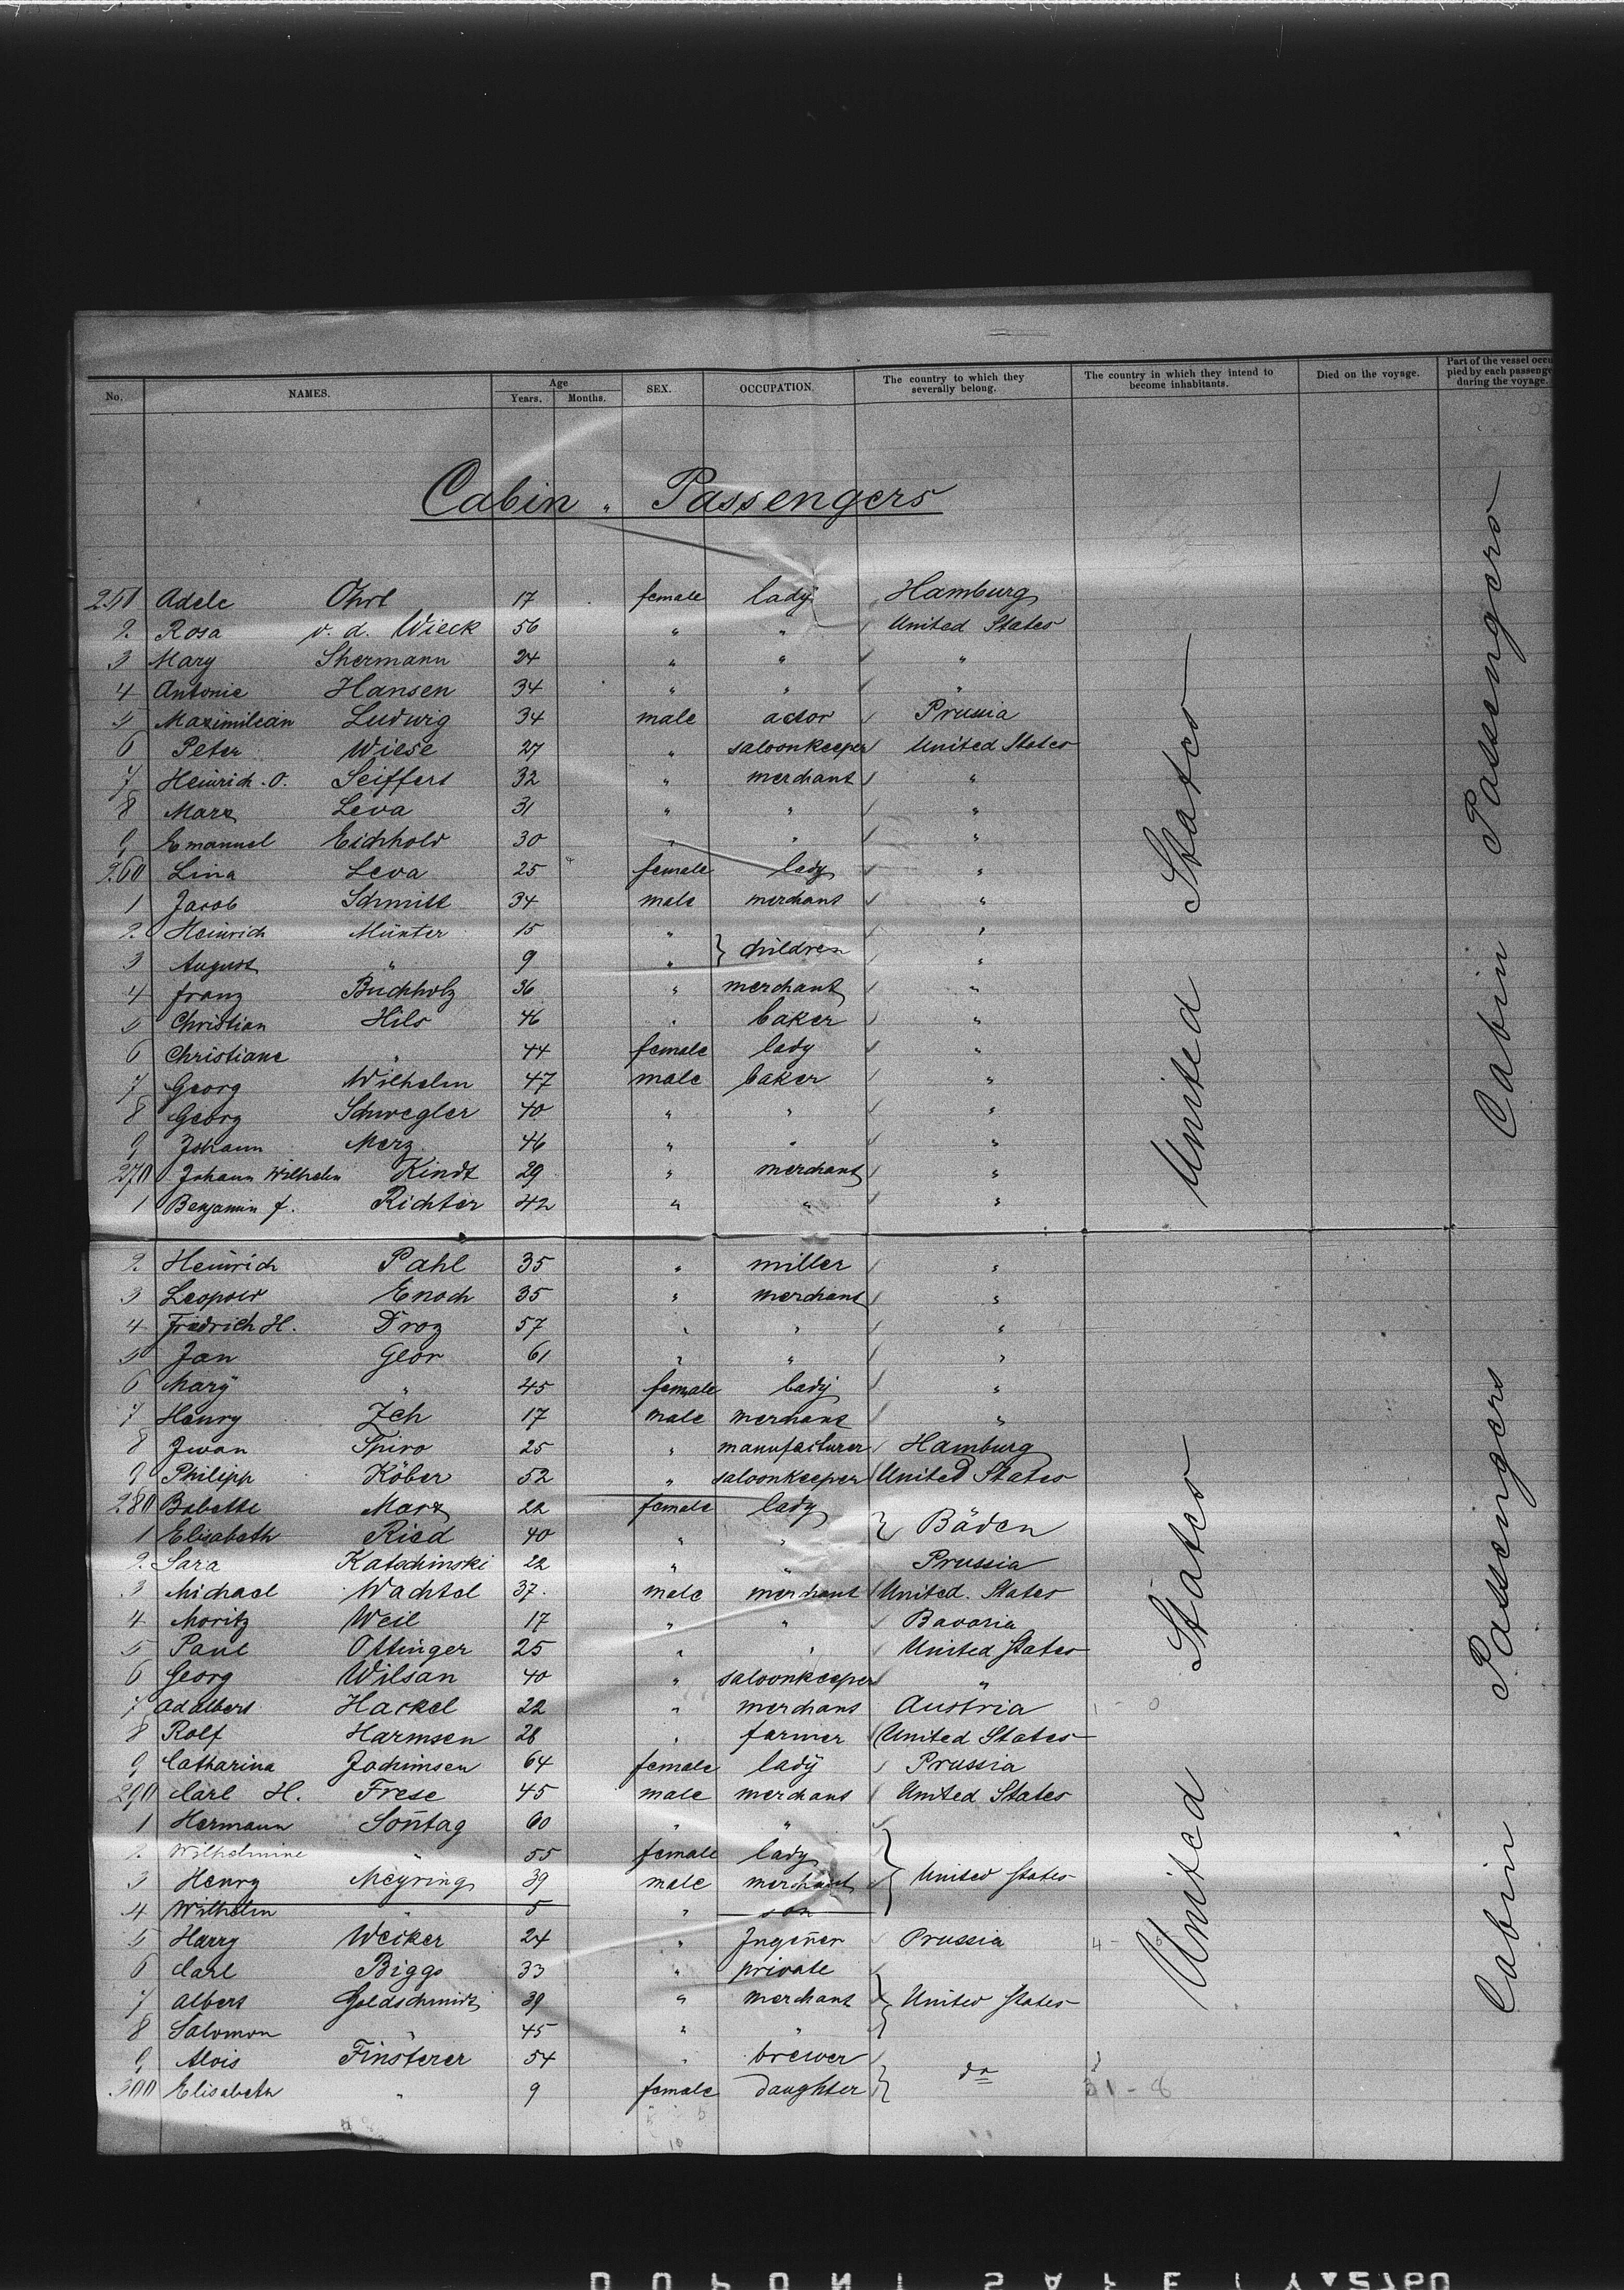 No. NAMES. Age Years. Months. SEX. OCCUPATION. The country to which they severally belong. The country in which they intend to become inhabitants. Died on the voyage. Part of the vessel occu pied by each passenge during the voyage.
Cabin " Passengers
251 Adele Ohrt 17 female lady Hamburg
2. Rosa v. d. Wieck 56 " " United States
3 Mary Shermann 24 " " "
4 Antonie Hansen 34 " " "
5 Maximilian Ludwig 34 male actor Prussia
6 Peter Wiese 27 " saloonkeeper United States
7 Heinrich. O. Seiffert 32 " merchant "
8 Marx Leva 31 " " "
9 Emanuel Eichhold 30 " " "
260 Lina Leva 25 female lady "
1 Jacob Schmitt 34 male merchant "
2. Heinrich Münter 15 " "
3 August " 9 " } children "
4 Franz Buchholz 36 " merchant "
5 Christian Hils 46 " baker "
6 Christiane " 44 female lady "
7 Georg Wilhelm 47 male baker "
8 Georg Schwegler 40 " " "
9 Johann Merz 46 " " "
270 Johann Wilhelm Kindt 29 " merchant "
1 Benjamin F. Richter 42 " " "
2. Heinrich Pahl 35 " miller "
3 Leopold Enoch 35 " merchant "
4 Friedrich H. Droz 57 " " "
5 Jan Geor 61 " " "
6 Marÿ " 45 female lady "
7 Henry Zeh 17 male merchant "
8 Iwan Spiro 25 " manufacturer Hamburg
9 Philipp Köber 52 " saloonkeeper United States
280 Babette Marx 22 female lady
1 Elisabeth Ried 40 " " } Bäden
2. Sara Katschinski 22 " " Prussia
3 Michael Wachtel 37. male merchant United. States
4 Moritz Weil 17 " " Bavaria
5 Paul Ottinger 25 " " United States
6 Georg Wilsan 40 " saloonkeeper "
7 Adalbert Hackel 22 " merchant Austria
8 Rolf Harmsen 28 " farmer United States
9 Catharina Jochimsen 64 female ladÿ Prussia
290 Carl H. Frese 45 male merchant United States
1 Hermann Son̄tag 60 " "
2. Wilhelmine " 55 female lady
3 Henry Meÿring 39 male merchant } United States
4 Wilhelm " 5 " son
5 Harry Weiker 24 " Ingen̄er Prussia 4 -
6 Carl Biggs 33 " private
7 Albert Goldschmidt 39 " merchant } United States
8 Salomon " 45 " "
9 Alois Finsterer 54 " brewer
300 Elisabeth " 9 female daughter } do 31 - 8
United States
United States
Cabin Passengers
Cabin Passengers